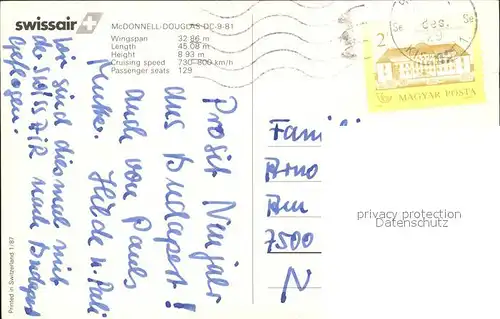 swissair
McDONNELL-DOUGLAS DC-9-81
Wingspan 32.86 m
Length 45.08 m
Height 8.93 m
Cruising speed 730-800 km/h
Passenger seats 129
Prosit Neujahr
aus Budapest!
auch von Pauls
Mutter. Hilde u. Pali
Wir sind diesmal mit
der Swissair nach Budapest
geflogen.
Printed in Switzerland 1/87
2
MAGYAR POSTA
Fami
Arno
Am
7500
privacy protection
Datenschutz